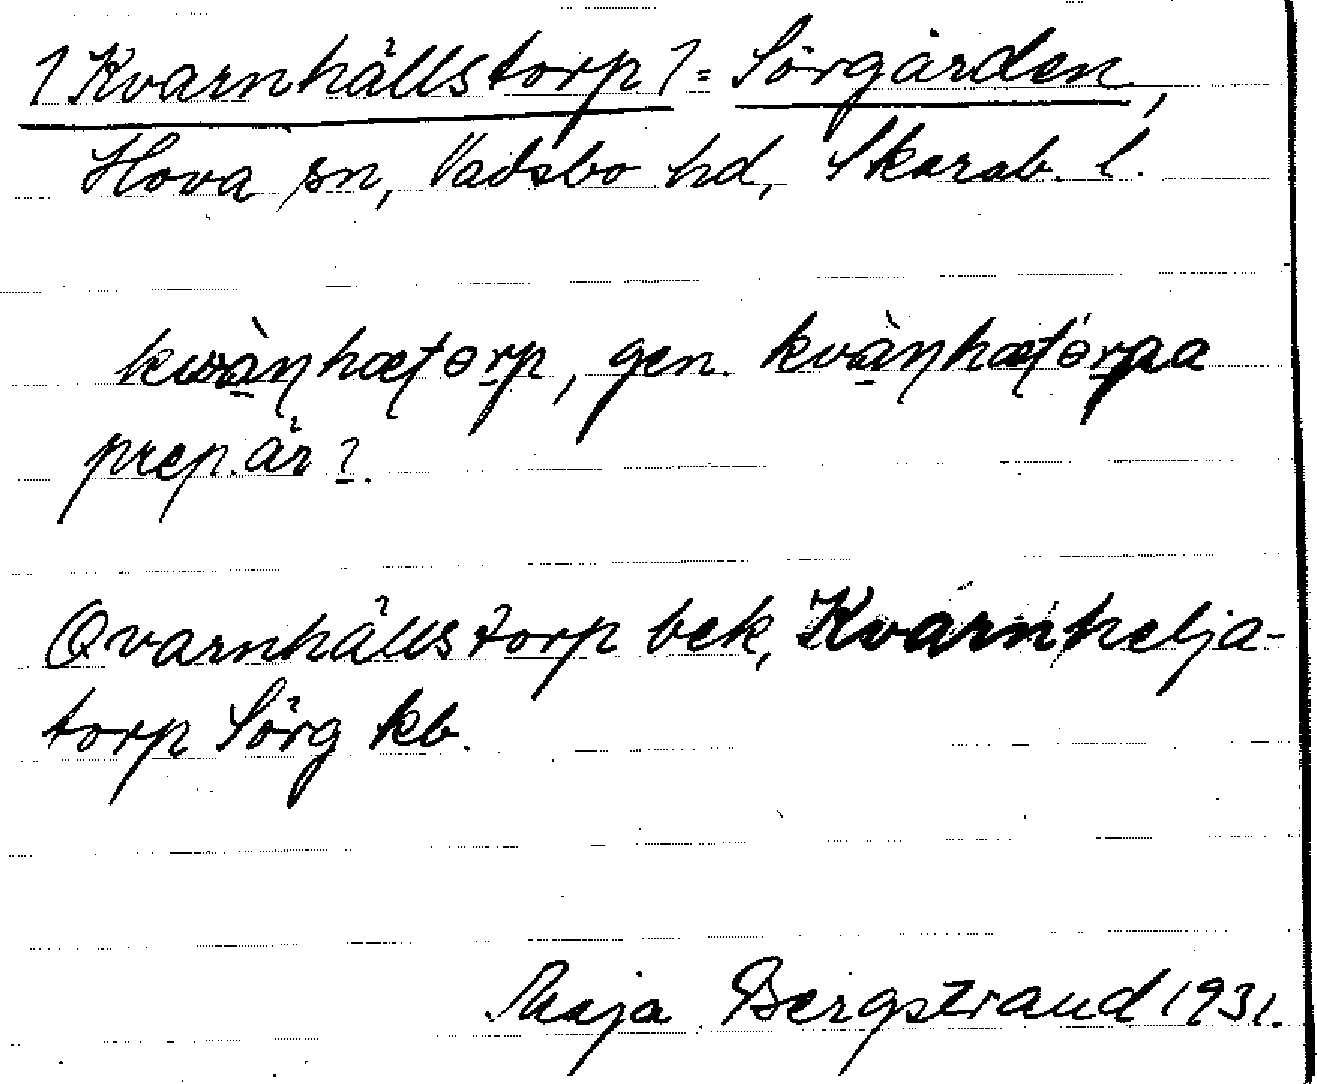 ? Kvarnhällstorp? = Sörgården,
Hova sn, Vadsbo hd, Skarab. l.
kvàṇhætɵrp, gen. kvàṇhætɵ́rpa
prep. är ?.
Qvarnhällstorp bek, Kvarnhelja-
torp Sörg kb.
Maja Bergstrand 1931.